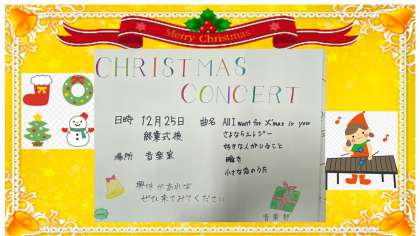 Merry Christmas
CHRISTMAS
CONCERT
日時 12月25日
終業式後
場所 音楽室
曲名 All I Want for X'mas is you
さよならエレジー
好きな人がいること
瞳き
小さな恋のうた
興味があれば
ぜひ来てみてください
音楽部